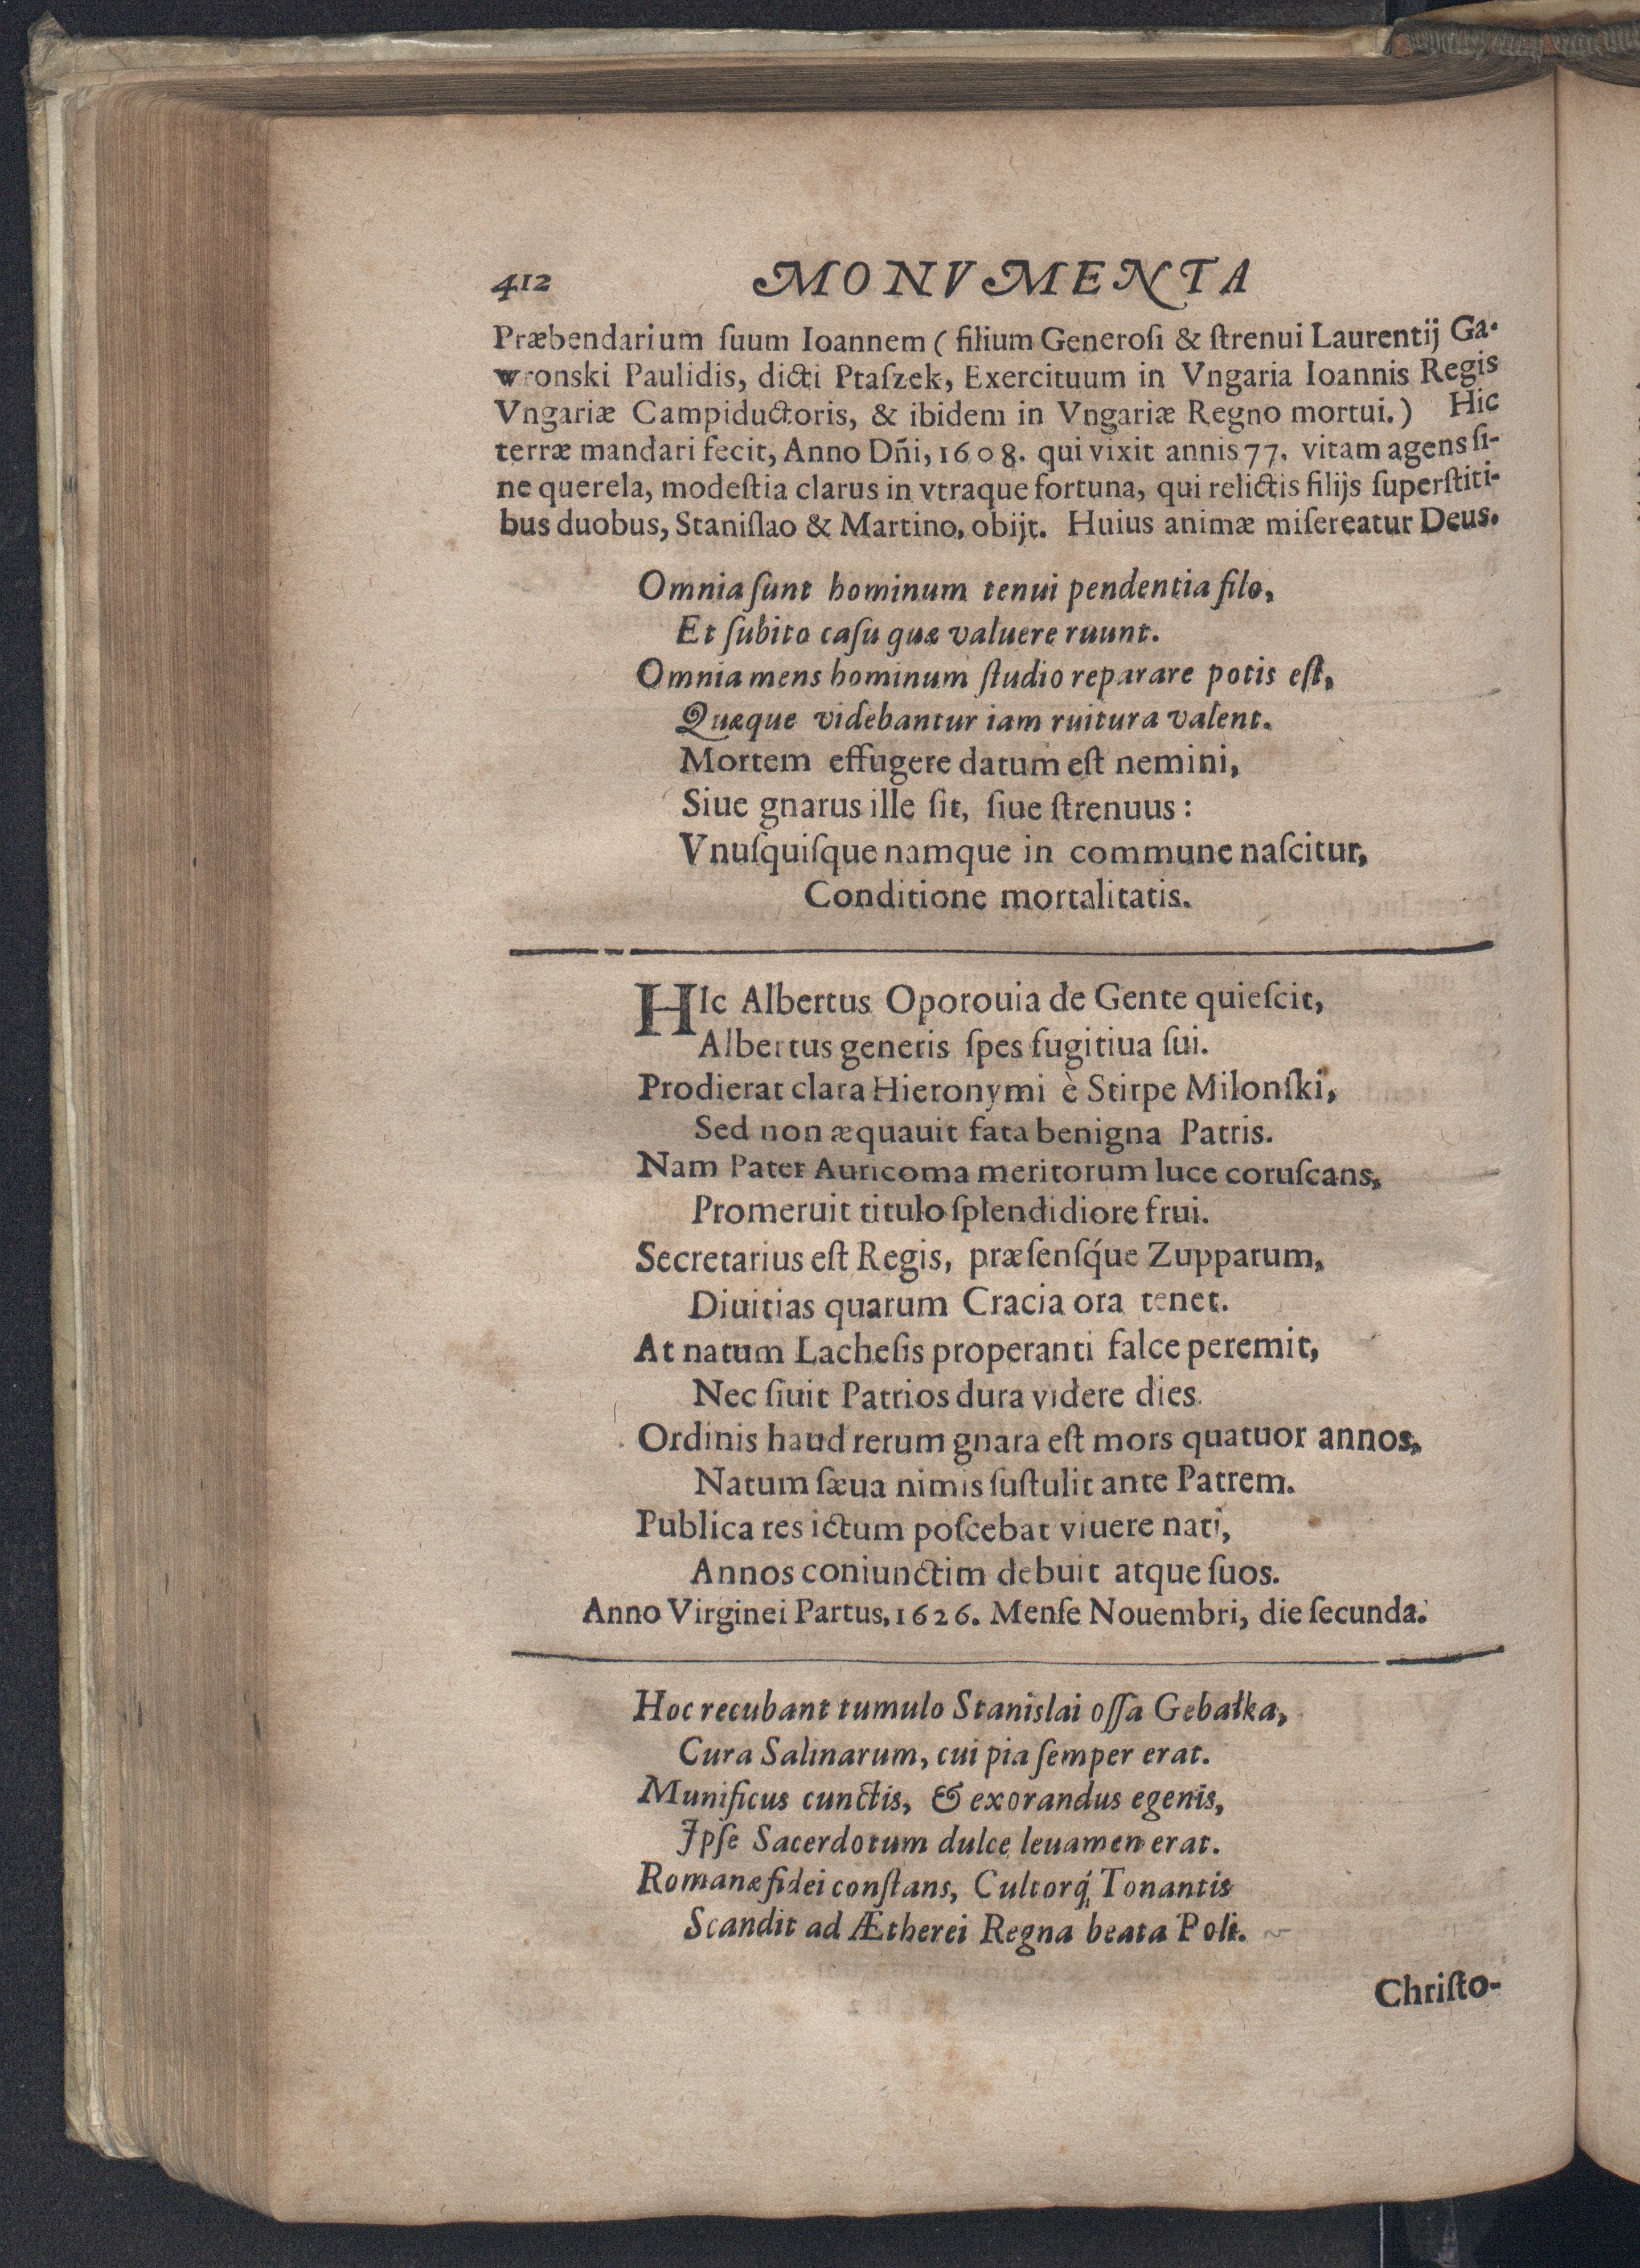 412 MONVMENTA
Præbendarium ſuum Ioannem ( filium Generoſi & ſtrenui Laurentij Ga-
wronski Paulidis, dicti Ptaſzek, Exercituum in Vngaria Ioannis Regis
Vngariæ Campiductoris, & ibidem in Vngariæ Regno mortui.) Hic
terræ mandari fecit, Anno Dñi, 1608. qui vixit annis 77. vitam agens ſi-
ne querela, modeſtia clarus in vtraque fortuna, qui relictis filijs ſuperſtiti-
bus duobus, Staniſlao & Martino, obijt. Huius animæ miſereatur Deus.
Omnia ſunt hominum tenui pendentia filo,
Et ſubito caſu quæ valuere ruunt.
Omnia mens hominum ſtudio reparare potis eſt,
Quæque videbantur iam ruitura valent.
Mortem effugere datum eſt nemini,
Siue gnarus ille ſit, ſiue ſtrenuus:
Vnuſquiſque namque in commune naſcitur,
Conditione mortalitatis.
HIc Albertus Oporouia de Gente quieſcit,
Albertus generis ſpes fugitiua ſui.
Prodierat clara Hieronymi è Stirpe Milonſki,
Sed non æquauit fata benigna Patris.
Nam Pater Auricoma meritorum luce coruſcans,
Promeruit titulo ſplendidiore frui.
Secretarius eſt Regis, præſenſq́ue Zupparum,
Diuitias quarum Cracia ora tenet.
At natum Lacheſis properanti falce peremit,
Nec ſiuit Patrios dura videre dies.
Ordinis haud rerum gnara eſt mors quatuor annos,
Natum ſæua nimis ſuſtulit ante Patrem.
Publica res ictum poſcebat viuere nati,
Annos coniunctim debuit atque ſuos.
Anno Virginei Partus, 1626. Menſe Nouembri, die ſecunda.
Hoc recubant tumulo Stanislai oſſa Gebałka,
Cura Salinarum, cui pia ſemper erat.
Munificus cunctis, & exorandus egenis,
Ipſe Sacerdotum dulce leuamen erat.
Romanæ fidei conſtans, Cultorq́; Tonantis
Scandit ad Ætherei Regna beata Poli.
Chriſto-